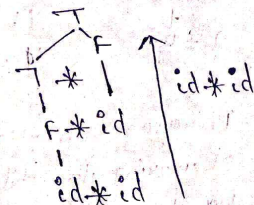 T
F
T *
id * id
F * id
id * id